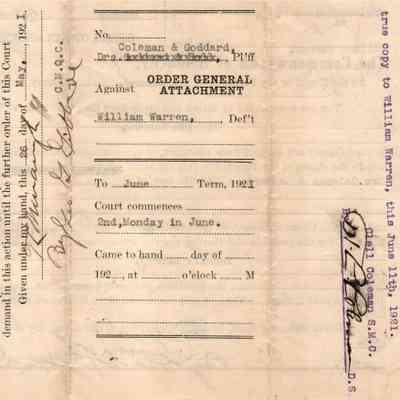 demand in this action until the further order of this Court
Given under my hand, this 26 day of May, 1921.
C.M.Q.C.
No.
Coleman & Goddard,
Drs. Pl'ff
Against
ORDER GENERAL
ATTACHMENT
William Warren, Def't
To June Term, 1921
Court commences
2nd, Monday in June.
Came to hand day of
192 , at o'clock M
true copy to William Warren, this June 11th, 1921.
Clell Coleman S.M.C.
D.S